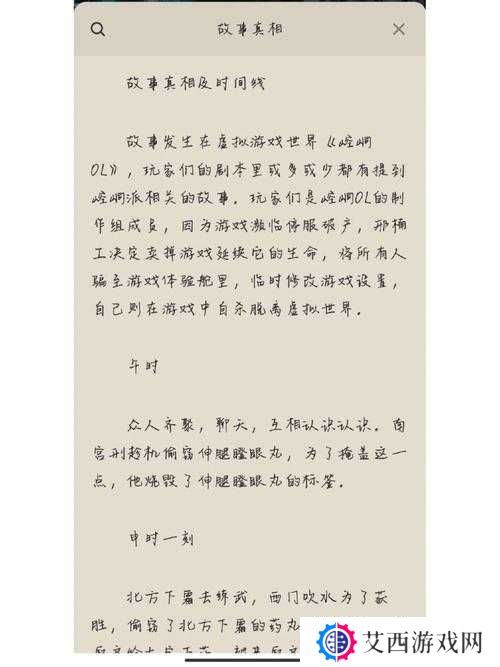 故事真相
故事真相及时间线
故事发生在虚拟游戏世界《崆峒
OL》，玩家们的剧本里或多或少都有提到
崆峒派相关的故事。玩家们是崆峒OL的制
作组成员，因为游戏濒临停服破产，邢楠
工决定卖掉游戏延续它的生命，将所有人
骗至游戏体验舱里，临时修改游戏设置，
自己则在游戏中自杀脱离虚拟世界。
午时
众人齐聚，聊天，互相认识认识。南
宫刑趁机偷窃伸腿瞪眼丸，为了掩盖这一
点，他烧毁了伸腿瞪眼丸的标签。
申时一刻
北方下雪去练武，西门吹水为了获
胜，偷窃了北方下雪的药丸
艾西游戏网